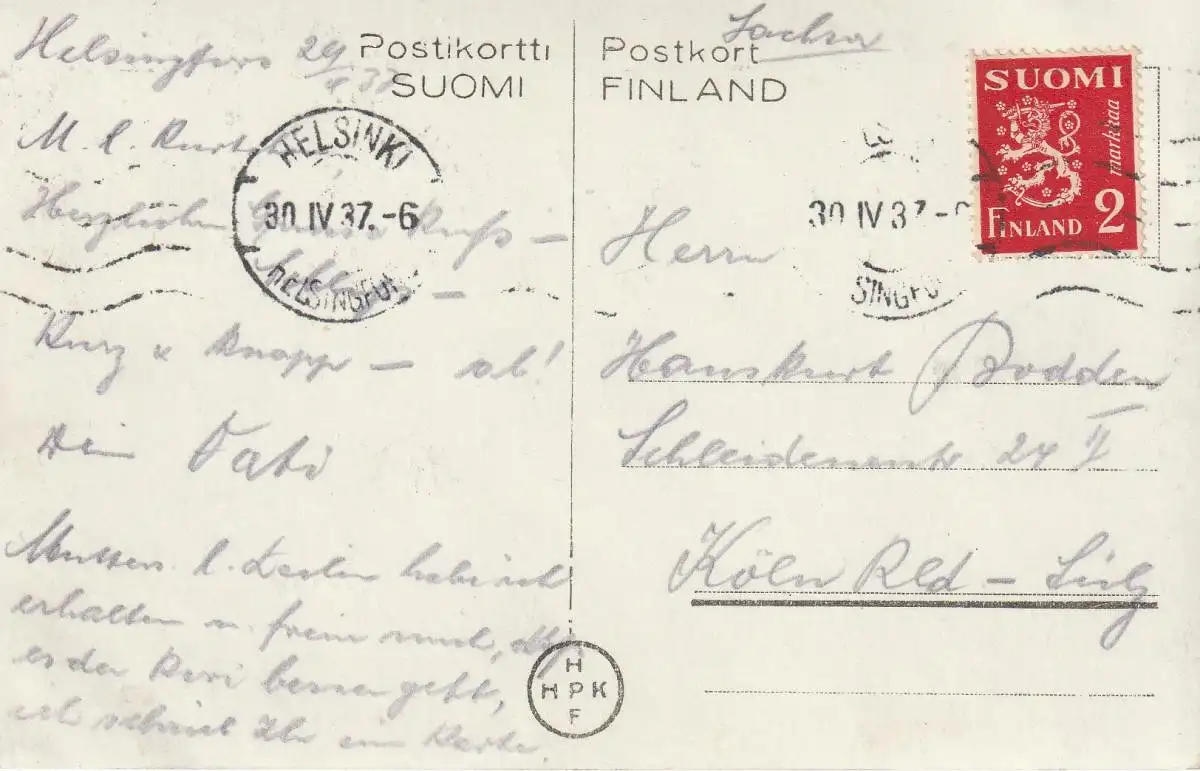 Helsingfors 29/4 37
Postikortti
SUOMI
Postkort
FINLAND
SUOMI
markkaa
FINLAND 2
HELSINKI
30 IV 37.-6
HELSINGFO
30 IV 37-
SINGFO
M. l. Kurt
Herzlichen Kuss —
Kurz u knapp — ab!
Dein Vati
Mutters l. Zeilen habe ich
erhalten u. freue mich, dass
es der besser geht,
ich schrieb Ihr eine Karte
Herrn
Hanskurt Bodden
Schleidenerstr 24 II
Köln Rld – Sülz
H
H P K
F